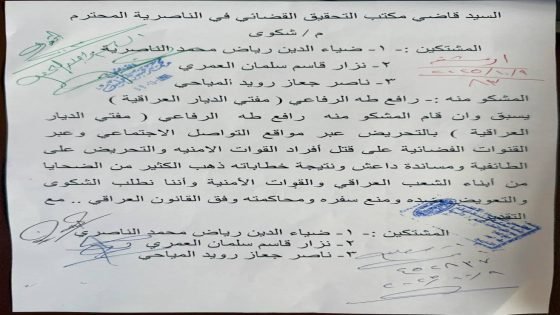 السيد قاضي مكتب التحقيق القضائي في الناصرية المحترم
م / شكوى
المشتكين :- ١- ضياء الدين رياض محمد الناصرية
٢- نزار قاسم سلمان العمري
٣- ناصر جعاز رويد المياحي
المشكو منه :- رافع طه الرفاعي ( مفتي الديار العراقية )
يسبق وان قام المشكو منه رافع طه الرفاعي ( مفتي الديار
العراقية ) بالتحريض عبر مواقع التواصل الاجتماعي وعبر
القنوات الفضائية على قتل أفراد القوات الامنيه والتحريض على
الطائفية ومساندة داعش ونتيجة خطاباته ذهب الكثير من الضحايا
من أبناء الشعب العراقي والقوات الأمنية وأننا نطلب الشكوى
والتعويض ضده ومنع سفره ومحاكمته وفق القانون العراقي .. مع
التقدير
المشتكين :- ١- ضياء الدين رياض محمد الناصري
٢- نزار قاسم سلمان العمري
٣- ناصر جعاز رويد المياحي